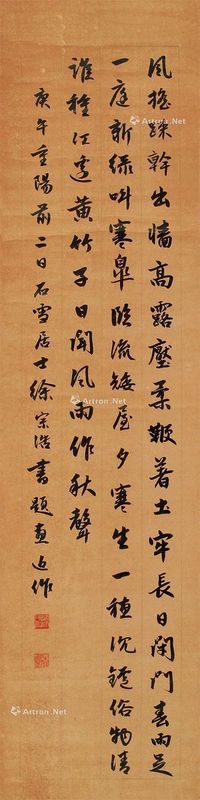 風搖疎幹出墻高露壓柔鞭著土牢長日閑門春雨足
一庭新綠叫寒皐臨流矮屋夕寒生一種沉鑪俗物清
誰種江邊黄竹子日聞風雨作秋聲
庚午重陽前二日石雪居士徐宗浩書題畫近作
Artron.Net
Artron.Net
Artron.Net
Artron.Net